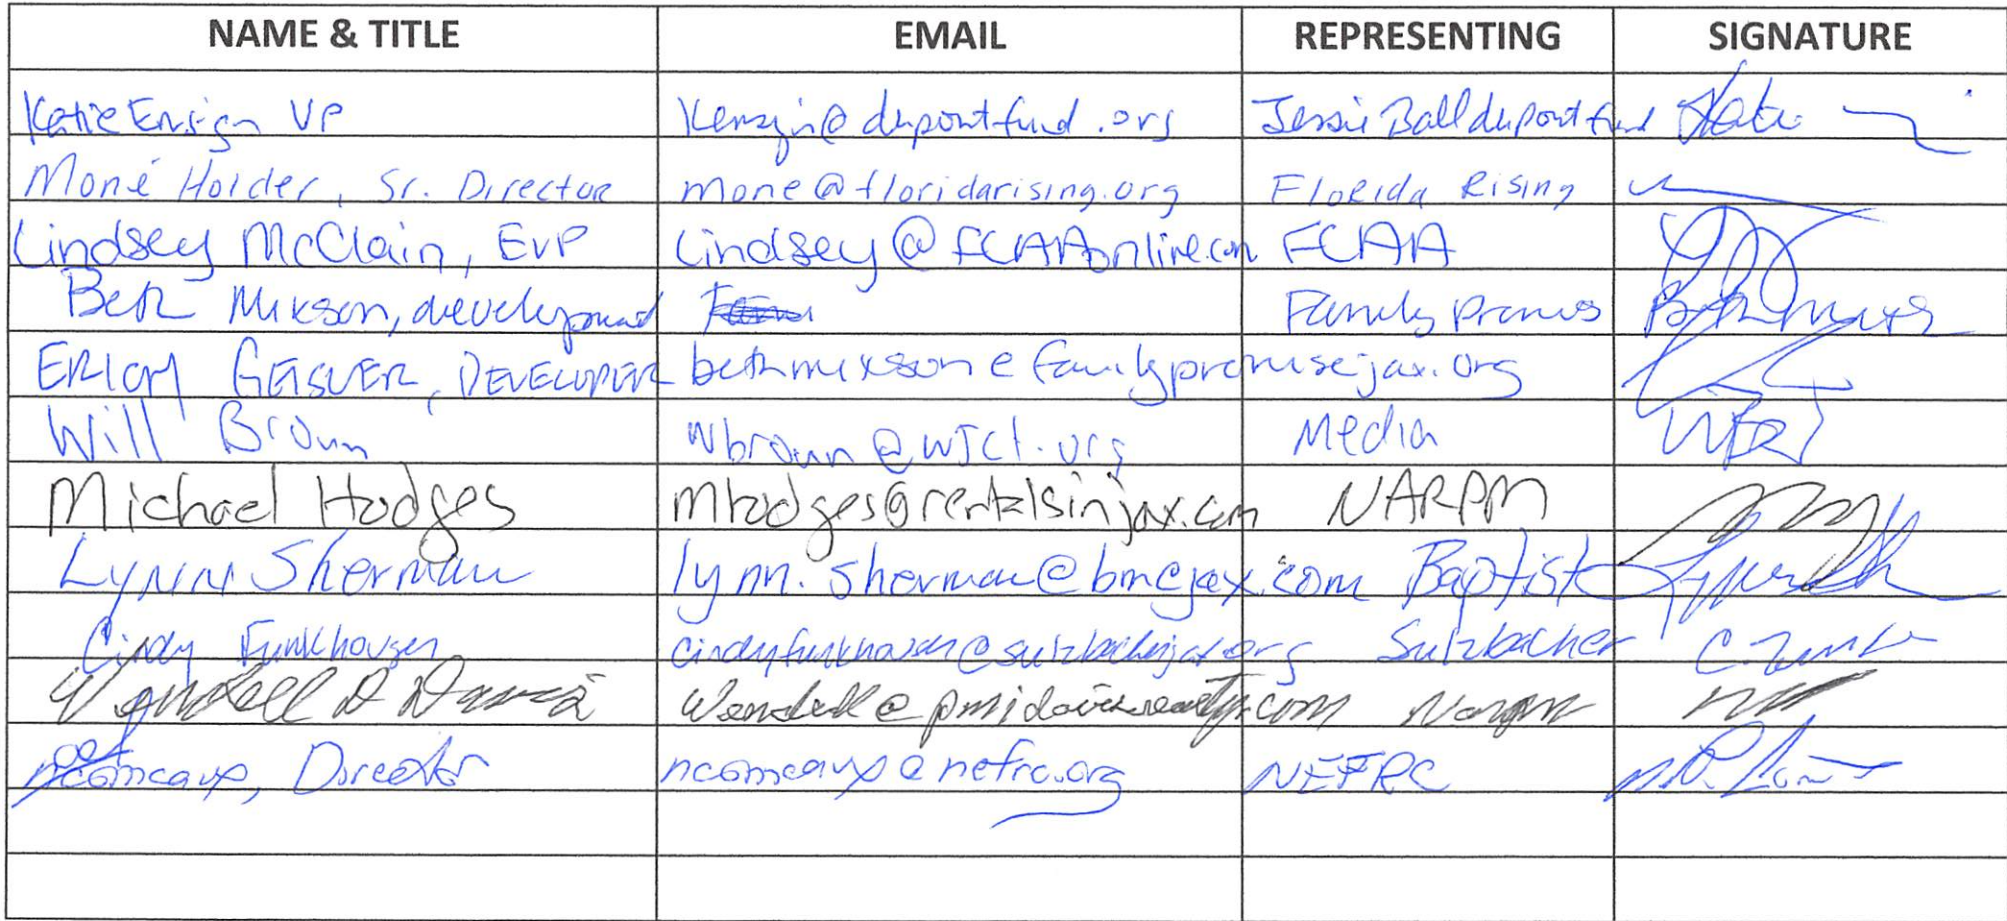 NAME & TITLE EMAIL REPRESENTING SIGNATURE
Katie Ensign VP Kensign@dupontfund.org Jessie Ball duPont fund Katie
Moné Holder, Sr. Director mone@floridarising.org Florida Rising
Lindsey McClain, EVP Lindsey@FCAAonline.com FCAA
Beth Mixson, development Family Promise Beth Mixson
ERICH GEISLER, DEVELOPER bethmixson@familypromisejax.org
Will Brown wbrown@wjct.org Media
Michael Hodges mhodges@rentalsinjax.com NARPM
Lynn Sherman lynn.sherman@bmcjax.com Baptist
Cindy Funkhouser cindyfunkhouser@sulzbacherjax.org Sulzbacher
Wendell D Davis Wendell@pmidavisrealty.com Narpm
ncomeaux, Director ncomeaux@nefrc.org NEFRC